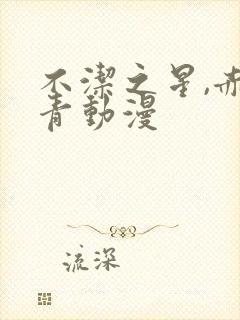 不潔之星,赤
青動漫
流深